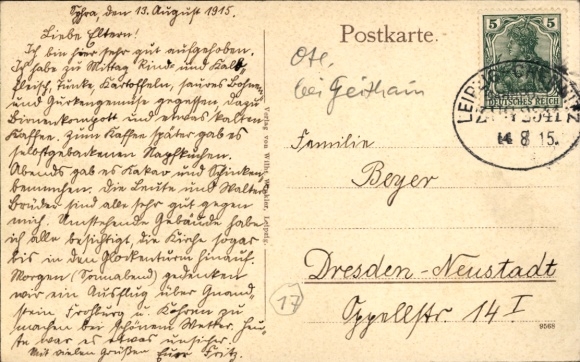 Syhra, den 13. August 1915.
Liebe Eltern!
Ich bin hier sehr gut aufgehoben.
Ich habe zu Mittag Rind- und Kalb-
fleisch, Tunke, Kartoffeln, saures Bohnen-
und Gurkengemüse gegessen, dazu
Birnenkompott und etwas kalten
Kaffee. Zum Kaffee später gab es
selbstgebackenen Napfkuchen.
Abends gab es Kakao und Schinken-
bemmchen. Die Leute und Walters
Brüder sind alle sehr gut gegen
mich. Umstehende Gebäude habe
ich alle besichtigt, die Kirche sogar
bis in den Glockenturm hinauf.
Morgen (Sonnabend) gedenken
wir ein Ausflug über Gnand-
stein, Frohburg u. Kohren zu
machen bei schönem Wetter. Heu-
te war es etwas unsicher.
Mit vielen Grüßen Euer Fritz.
Verlag von Wilh. Leipzig.
Postkarte.
bei Geithain
5 5
DEUTSCHES REICH
LEIPZIG-CHEMNITZ
14 8 15.
Familie
Beyer
Dresden-Neustadt
Oppellstr. 14 I
17
9568